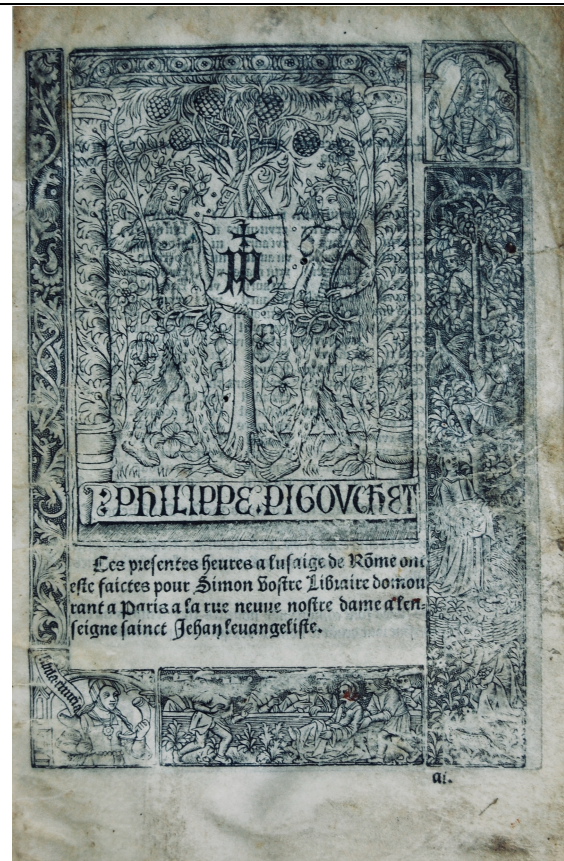 PHILIPPE PIGOVCHET
Ces presentes heures a lusaige de Rõme ont
este faictes pour Simon Vostre Libraire domou
rant a Paris a la rue neuve nostre dame a len-
seigne sainct Jehan levangeliste.
ai.